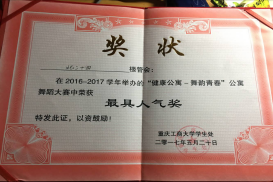 奖 状
楼管会：
在 2016-2017 学年举办的“健康公寓－舞韵青春”公寓
舞蹈大赛中荣获
最具人气奖
特发此证，以资鼓励！
重庆工商大学学生处
二〇一七年五月二十日